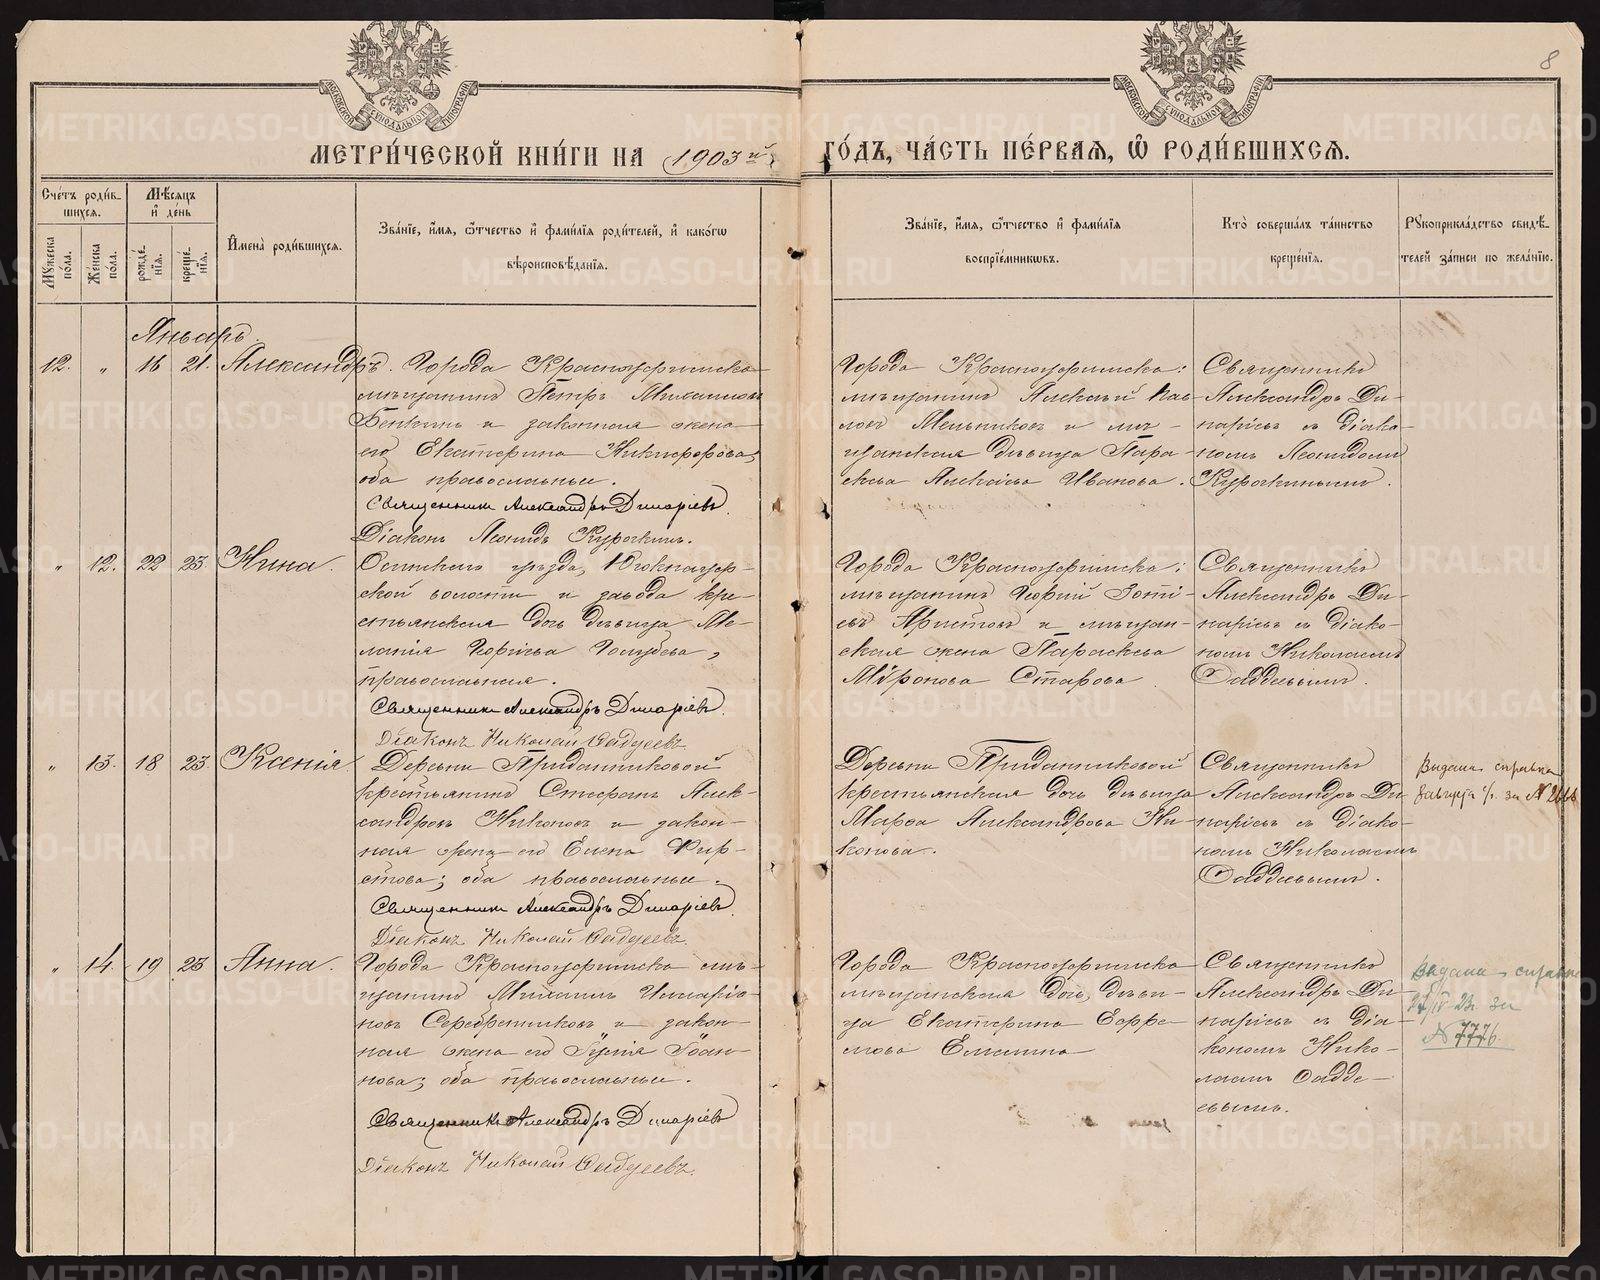 8
МЕТРИ́ЧЕСКОЙ КНИ́ГИ НА 1903 й ГО́ДЪ, ЧА́СТЬ ПЕ́РВАЯ, Ѡ҆ РОДИ́ВШИХСЯ.
Сче́тъ роди́в-
шихся.
Мꙋжеска пола.
Же́нска по́ла.
Мѣ́сяцъ
и҆ де́нь
рожде́-
нїя.
креще́-
нїя.
И҆мена̀ роди́вшихся.
Зва́нїе, и҆́мя, ѻ҆́тчество и҆ фами́лїя роди́телей, и҆ како́гѡ
вѣроисповѣ́данїя.
Зва́нїе, и҆́мя, ѻ҆́тчество и҆ фами́лїя
воспрїе́мникѡвъ.
Кто̀ соверша́лъ та́инство
креще́нїя.
Рꙋкоприкла́дство свидѣ́-
телей за́писи по жела́нїю.
Январь.
12. „ 16 21. Александръ.
Города Красноуфимска
мѣщанинъ Петръ Михаиловъ
Бенкинъ и законная жена
его Екатерина Никифорова,
оба православные.
Священникъ Александръ Димаріевъ.
Діаконъ Леонидъ Курочкинъ.
Города Красноуфимска:
мѣщанинъ Алексѣй Пав-
ловъ Мельниковъ и мѣ-
щанская дѣвица Пара-
скева Алексѣева Иванова.
Священникъ
Александръ Ди-
маріевъ съ діако-
номъ Леонидомъ
Курочкинымъ.
„ 12. 22 23. Нина.
Осинскаго уѣзда, Югокнауф-
ской волости и завода кре-
стьянская дочь дѣвица Ме-
ланія Георгіева Голубева,
православная.
Священникъ Александръ Димаріевъ.
Діаконъ Николай Фаддеевъ
Города Красноуфимска:
мѣщанинъ Георгій Зоті-
евъ Аристовъ и мѣщан-
ская жена Параскева
Мѵронова Старова
Священникъ
Александръ Ди-
маріевъ съ діако-
номъ Николаемъ
Фаддеевымъ.
„ 13. 18 23. Ксенія.
Деревни Приданниковой
крестьянинъ Стефанъ Алек-
сандровъ Никоновъ и закон-
ная жена его Елена Фир-
стова; оба православные.
Священникъ Александръ Димаріевъ.
Діаконъ Николай Фаддеевъ.
Деревни Приданниковой
крестьянская дочь дѣвица
Марѳа Александрова Ни-
конова.
Священникъ
Александръ Ди-
маріевъ съ діако-
номъ Николаемъ
Фаддеевымъ.
Выдана справка
за № 2666
„ 14. 19 23 Анна.
Города Красноуфимска мѣ-
щанинъ Михаилъ Иларіо-
новъ Серебренниковъ и закон-
ная жена его Іулія Іоан-
нова; оба православные.
Священникъ Александръ Димаріевъ
Діаконъ Николай Фаддеевъ.
Города Красноуфимска
мѣщанская дочь, дѣви-
ца Екатерина Ефре-
мова Емшина
Священникъ
Александръ Ди-
маріевъ съ діа-
кономъ Нико-
лаемъ Фадде-
евымъ.
Выдана справка
27/IV 23 за
№ 7776.